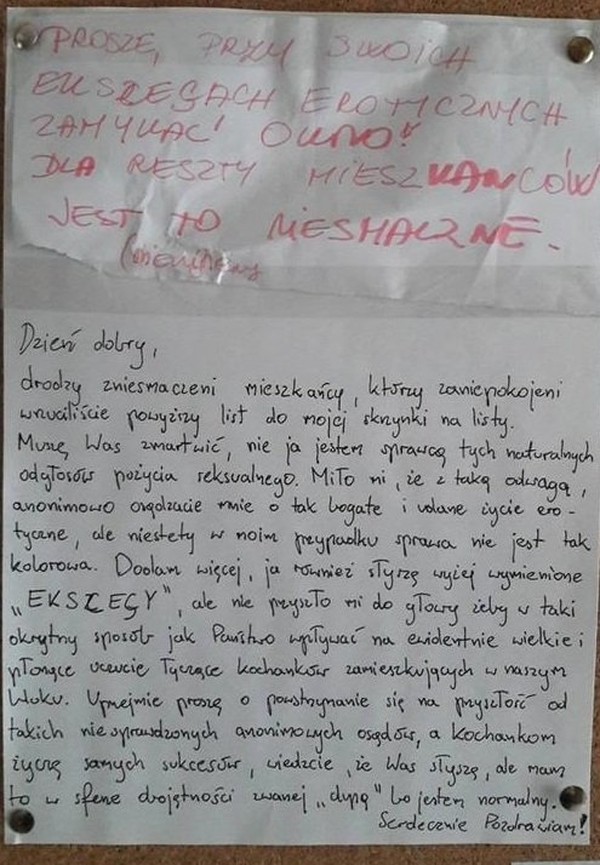 PROSZĘ, PRZY SWOICH
EKSZEGACH EROTYCZNYCH
ZAMYKAĆ OKNO!
DLA RESZTY MIESZKANCÓW
JEST TO NIESMACZNE.
Dzień dobry,
drodzy zniesmaczeni mieszkańcy, którzy zaniepokojeni
wrzuciliście powyższy list do mojej skrzynki na listy.
Muszę Was zmartwić, nie ja jestem sprawcą tych naturalnych
odgłosów pożycia seksualnego. Miło mi, że z taką odwagą,
anonimowo osądzacie mnie o tak bogate i udane życie ero-
tyczne, ale niestety w moim przypadku sprawa nie jest tak
kolorowa. Dodam więcej, ja również słyszę wyżej wymienione
„EKSZĘGY", ale nie przyszło mi do głowy żeby w taki
okrutny sposób jak Państwo wpływać na ewidentnie wielkie i
płonące uczucie łączące kochanków zamieszkujących w naszym
bloku. Uprzejmie proszę o powstrzymanie się na przyszłość od
takich niesprawdzonych anonimowych osądów, a kochankom
życzę samych sukcesów, wiedzcie, że Was słyszę, ale mam
to w sferze obojętności zwanej „dupą" bo jestem normalny.
Serdecznie Pozdrawiam!